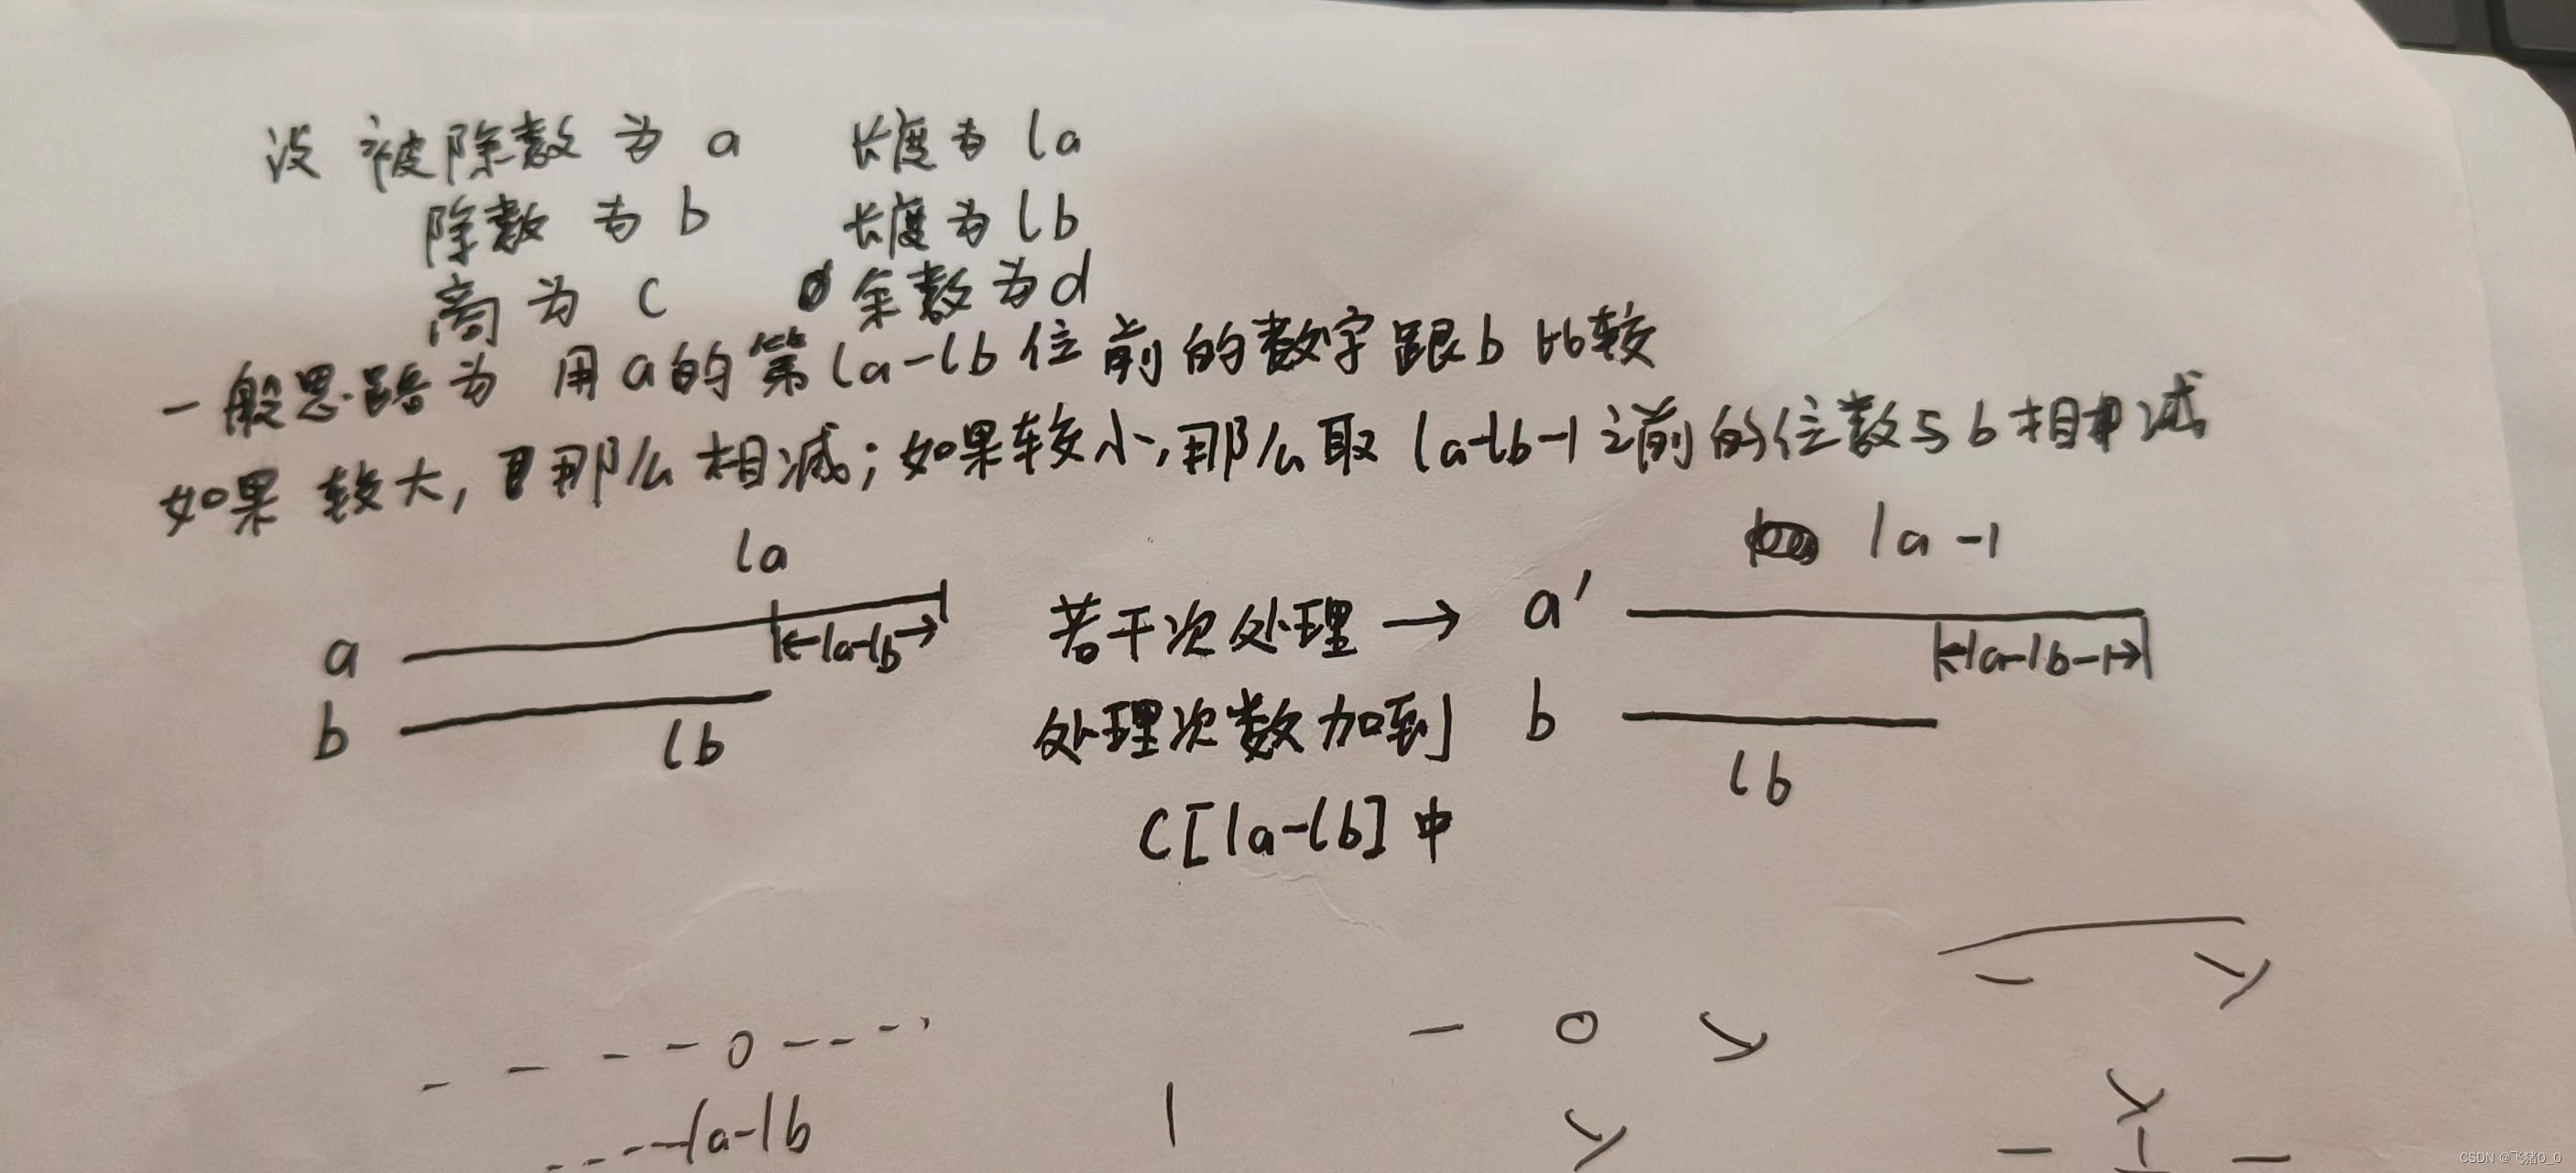 设被除数为a 长度为la
除数为b 长度为lb
商为c 余数为d
一般思路为 用a的第la-lb位前的数字跟b比较
如果较大,那么相减;如果较小,那么取la-lb-1之前的位数与b相减
la
a
←la-lb→
b
lb
若干次处理→
处理次数加到
C[la-lb]中
la-1
a'
←la-lb-1→
b
lb
----0----
----la-lb
CSDN @飞猪O_O